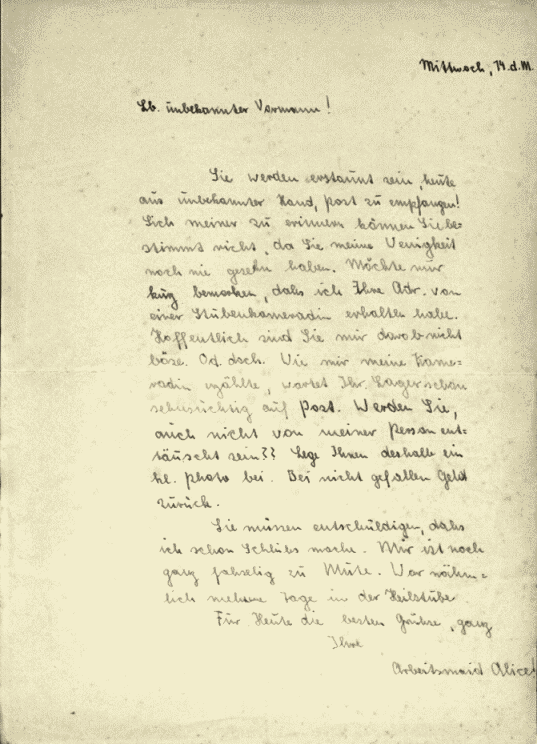 Mittwoch, 14.d.M.
Lb. unbekannter Vormann!
Sie werden erstaunt sein, heute
aus unbekannter Hand, post zu empfangen!
Sich meiner zu erinnern können Sie be=
stimmt nicht, da Sie meine Wenigkeit
noch nie gesehn haben. Möchte nur
kurz bemerken, dahs ich Ihre Adr. von
einer Stubenkameradin erhalten habe.
Hoffentlich sind Sie mir darob nicht
böse. Od. dsch. Wie mir meine Kame=
radin erzählte, wartet Ihr Lager schon
sehnsüchtig auf Post. Werden Sie,
auch nicht von meiner Person ent=
täuscht sein?? Lege Ihnen deshalb ein
kl. photo bei. Bei nicht gefallen Geld
zurück.
Sie müssen entschuldigen, dahs
ich schon Schluhs mache. Mir ist noch
ganz zu Mute. War nähm=
lich mehrere Tage in der Heilstube.
Für Heute die besten Grühse, ganz
Ihre
Arbeitsmaid Alice!